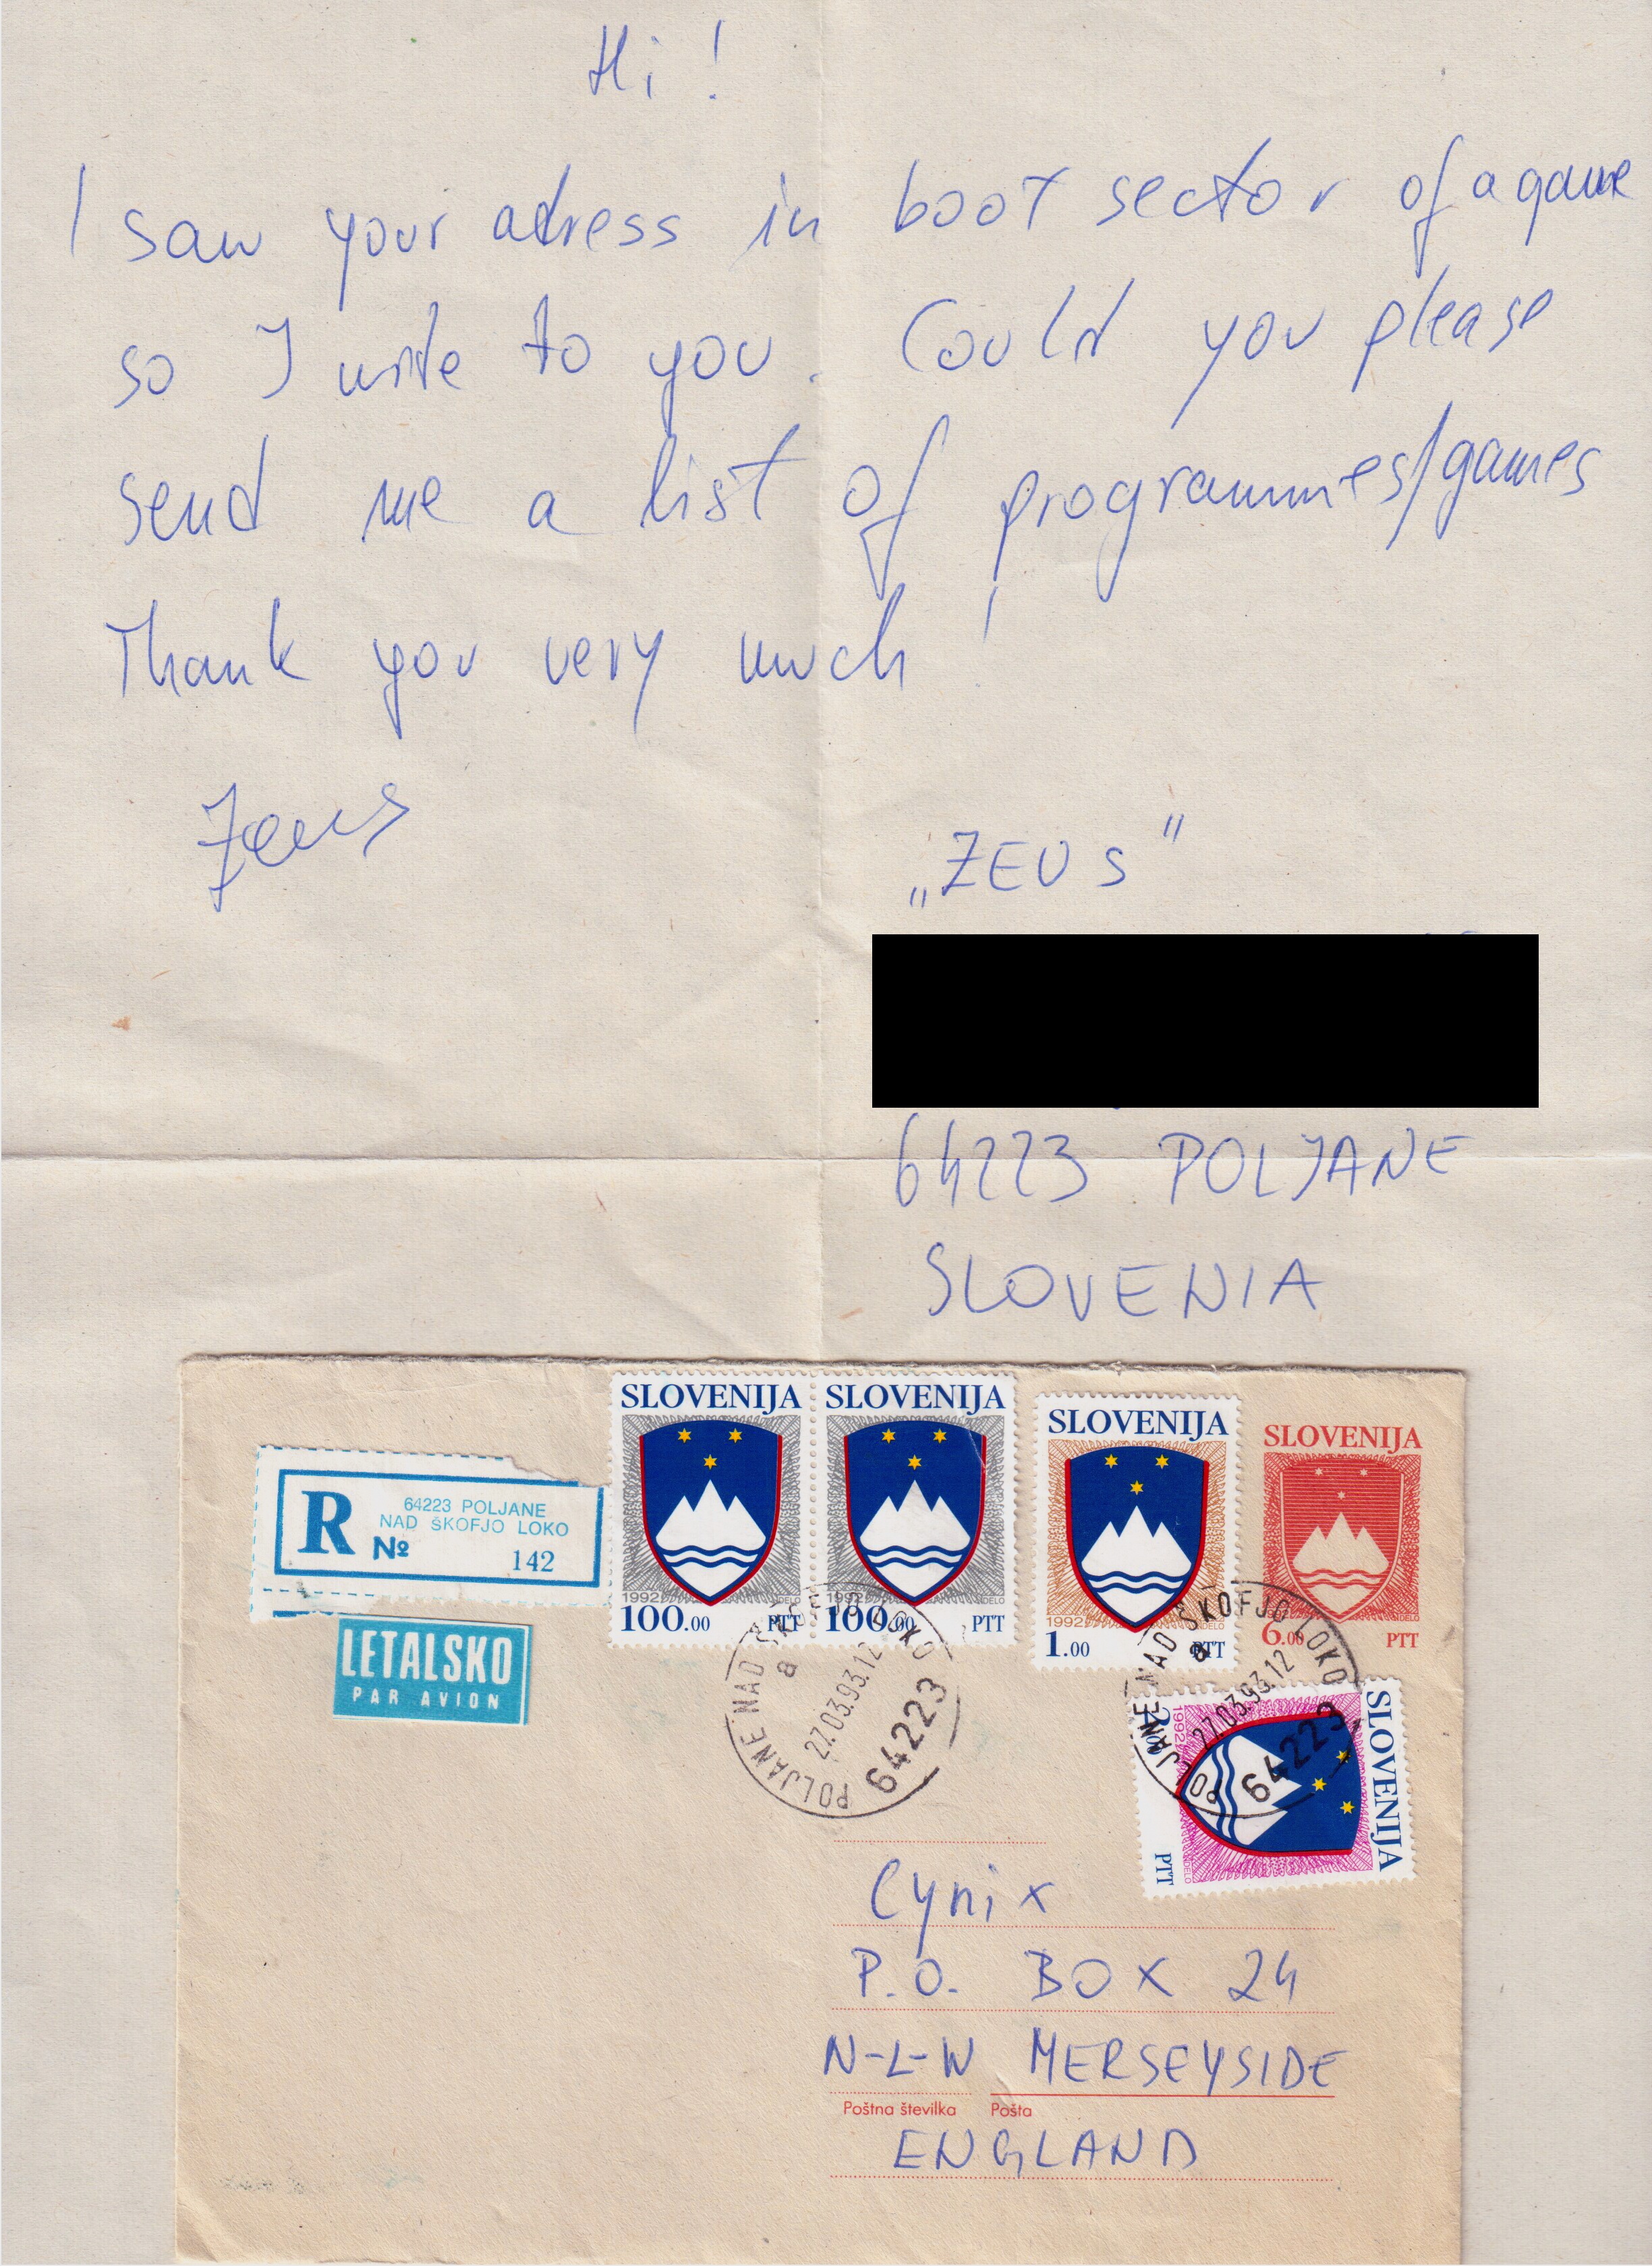 Hi !
I saw your adress in boot sector of a game
so I write to you. Could you please
send me a list of programmes/games
Thank you very much !
Zeus
„ZEUS"
64223 POLJANE
SLOVENIA
R
64223 POLJANE
NAD ŠKOFJO LOKO
No 142
LETALSKO
PAR AVION
SLOVENIJA
1992
100.00 PTT
SLOVENIJA
1992
100.00 PTT
SLOVENIJA
1992
1.00 PTT
SLOVENIJA
6.00 PTT
SLOVENIJA
1992
PTT
POLJANE NAD ŠKOFJO LOKO
a
27.03.93.12
64223
POLJANE NAD ŠKOFJO LOKO
a
27.03.93.12
64223
Cynix
P.O. BOX 24
N-L-W MERSEYSIDE
Poštna številka Pošta
ENGLAND